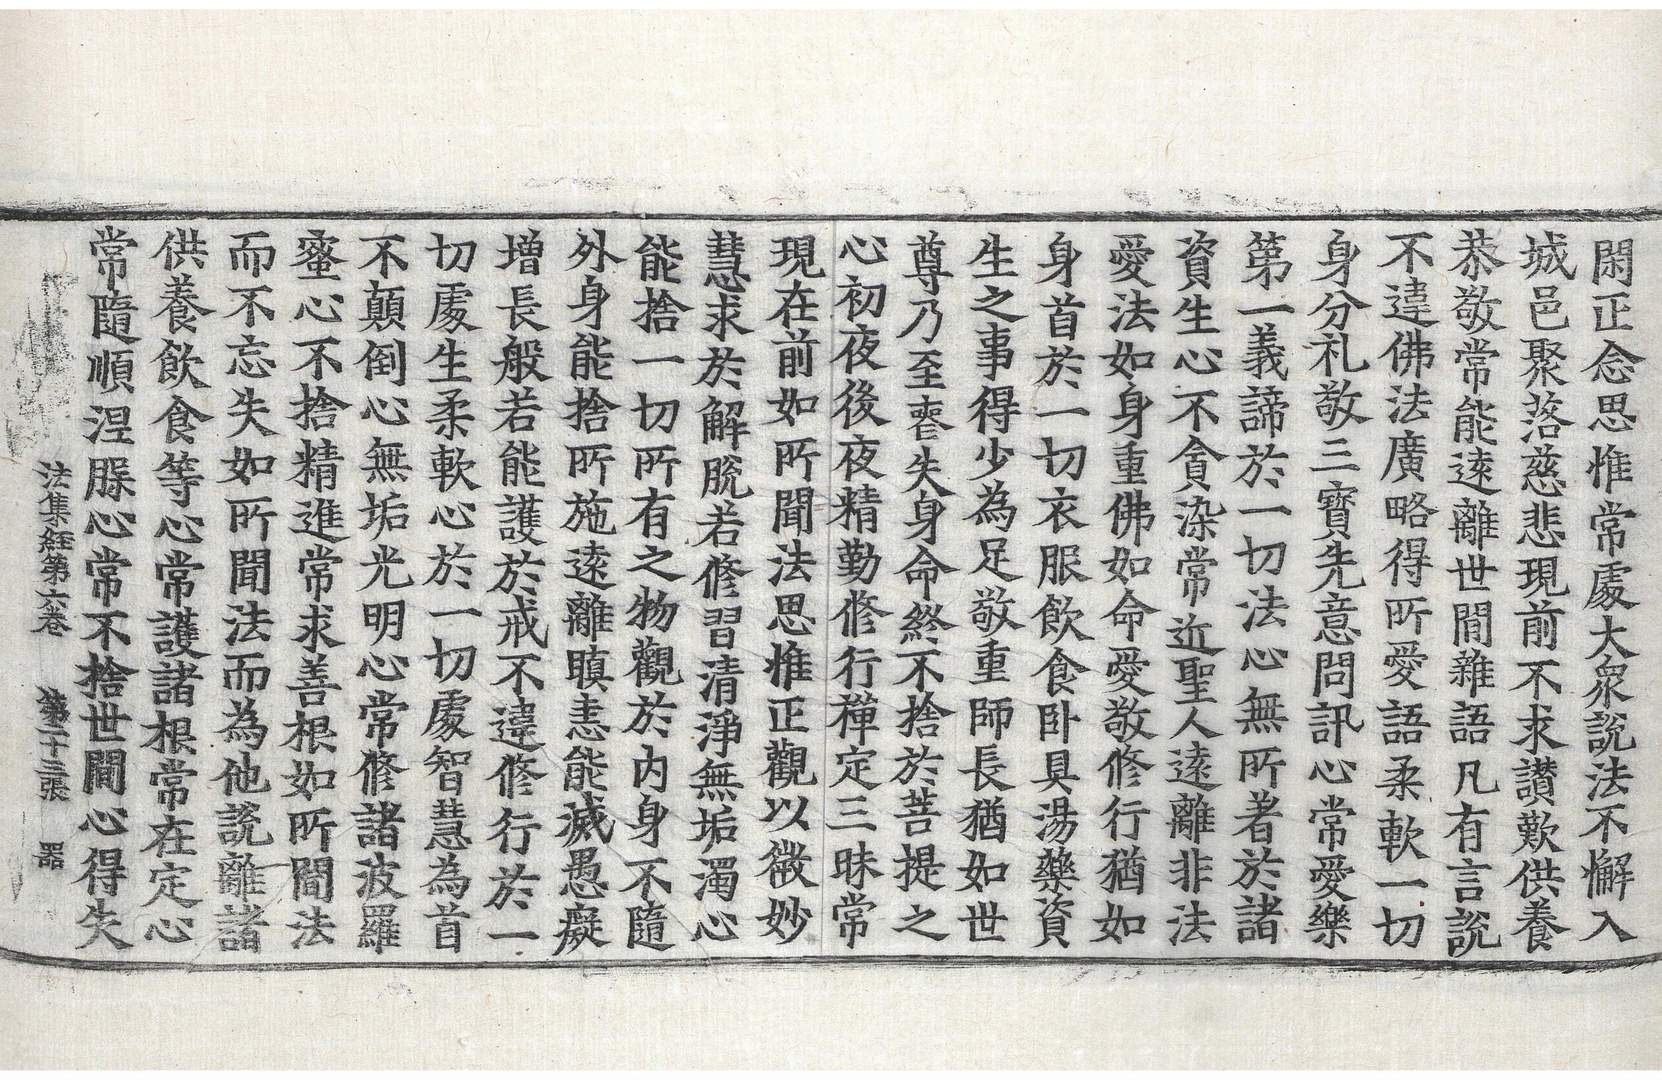 閑正念思惟常處大衆說法不懈入
城邑聚落慈悲現前不求讃歎供養
恭敬常能逺離世間雜語凡有言說
不違佛法廣略得所愛語柔軟一切
身分礼敬三寶先意問訊心常愛樂
第一義諦於一切法心無所著於諸
資生心不貪染常近聖人逺離非法
愛法如身重佛如命愛敬修行猶如
身首於一切衣服飲食卧具湯藥資
生之事得少為足敬重師長猶如世
尊乃至喪失身命終不捨於菩提之
心初夜後夜精勤修行禪定三昧常
現在前如所聞法思惟正觀以微妙
慧求於解脫若修習清淨無垢濁心
能捨一切所有之物觀於内身不隨
外身能捨所施逺離瞋恚能滅愚癡
增長般若能護於戒不違修行於一
切處生柔軟心於一切處智慧為首
不顛倒心無垢光明心常修諸波羅
蜜心不捨精進常求善根如所聞法
而不忘失如所聞法而為他説離諸
供養飲食等心常護諸根常在定心
常隨順涅槃心常不捨世間心得失
法集経第六卷 第十三張 器